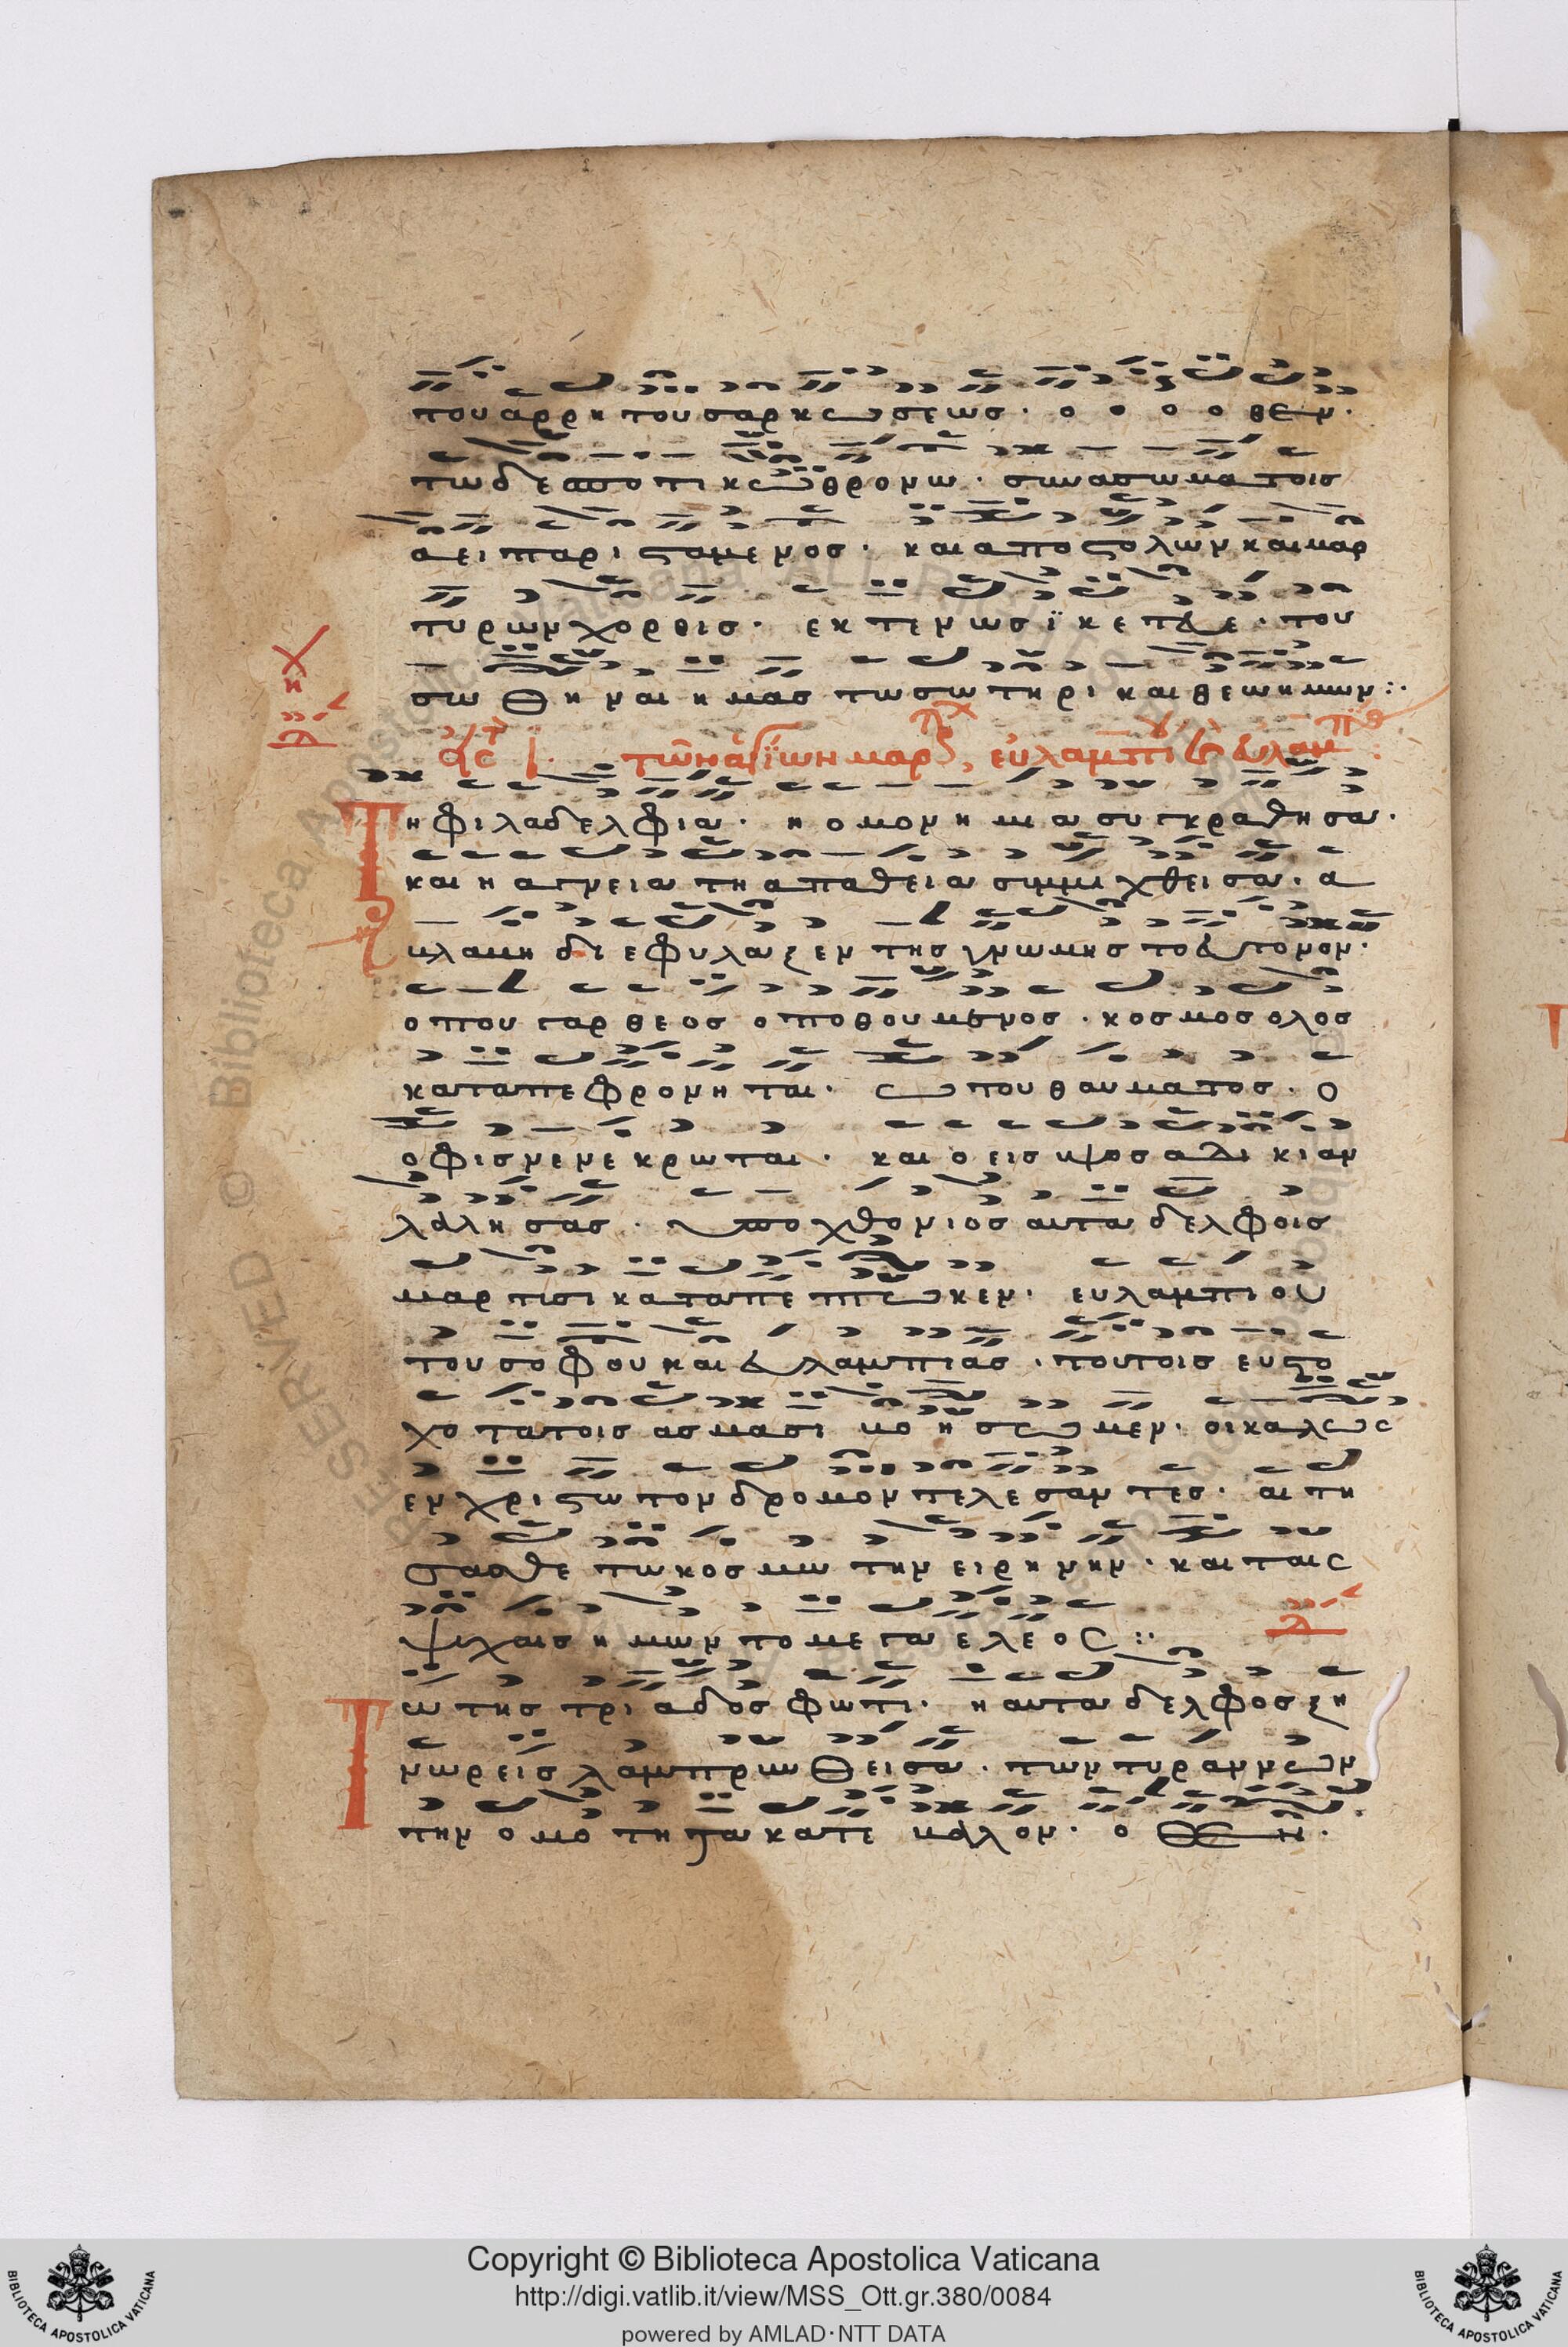 του αρρητου σαρκωσεως · ο ο ο ο θεν ·
τω δεσποτικω θρονω · συν ασωματοις
αει παριϛαμενος · και αποϛολων και μαρ
τυρων χορθις · εκτενωσ ϊκετευε · του
σωθηναι ημας τω σωτηρι και θεω ημων :·
των αγιων μαρ ευλαμπι ευλαμ
Τη φιλαδελφια · η ομονημα συγκραθησα ·
και η αγνεια τη απαθεια συμμιχθεισα · α
κλανη διεφυλαξεν της γνωμης το ευτονον ·
οπου γαρ θεος ο ποθουμενος · κοσμος ολος
καταπεφρονηται · ω του θαυματος · ο
οφις νενεκρωται · και ο εις υψος αδικιαν
λαλησας · υποχθονιος αυταδελφοις
μαρτυσι καταπεπτωκεν · ευλαμπιου
του σοφου και ευλαμπιας · τουτοις ευϛο
χοτατοις ασμασι βοησωμεν · οι καλως
εν χριϛω τον δρομον τελεσαντες · αιτη
σασθε τω κοσμω την ειρηνην · και ταις
ψυχαις ημων το μεγα ελεος :·
Τω της τριαδος φωτι · η αυταδελφος ξη
νωρεις λαμπρυνθεισα · των τυραννων
την ομοτητα κατεβαλον · οθεν ·
Copyright © Biblioteca Apostolica Vaticana
http://digi.vatlib.it/view/MSS_Ott.gr.380/0084
powered by AMLAD·NTT DATA
BIBLIOTECA APOSTOLICA VATICANA
BIBLIOTECA APOSTOLICA VATICANA